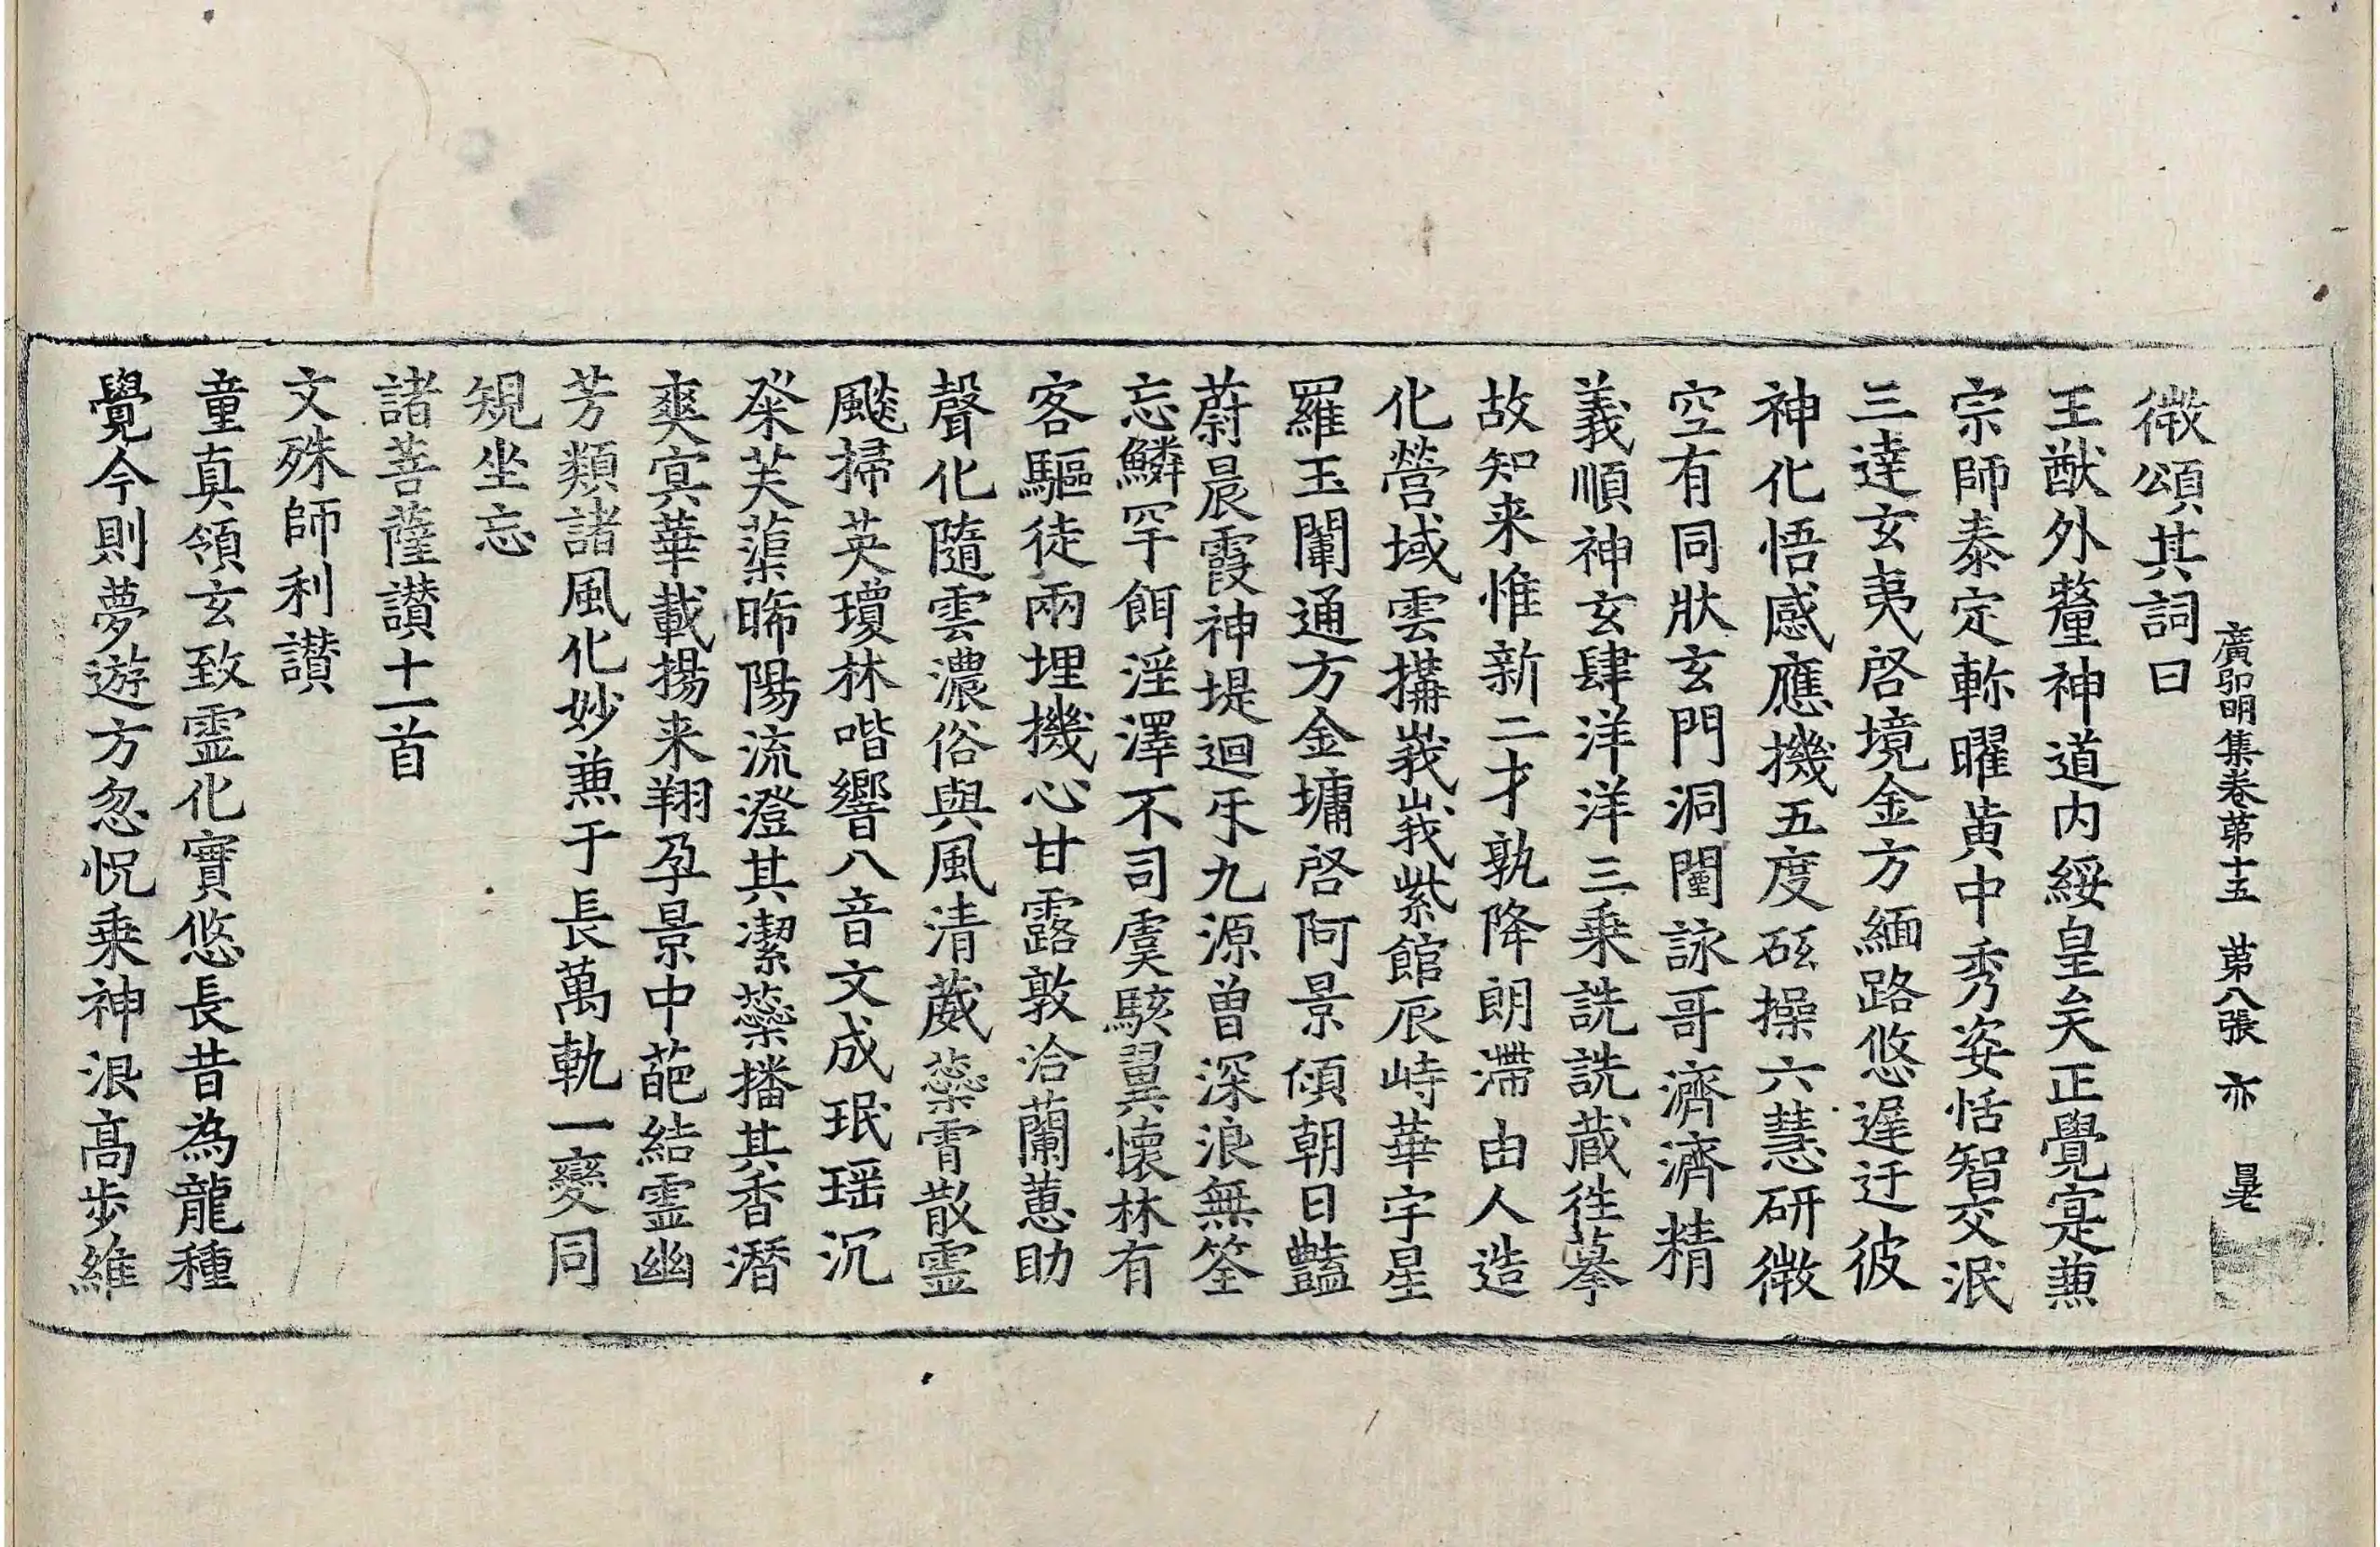 廣弘明集卷第十五　第八張　亦
微頌其詞曰
王猷外釐神道内綏皇矣正覺寔兼
宗師泰定軫曜黄中秀姿恬智交泯
三達玄夷啓境金方緬路悠遲迂彼
神化悟感應機五度砥操六慧研微
空有同狀玄門洞闓詠哥濟濟精
義順神玄肆洋洋三乗詵詵蔵徃摹
故知来惟新二才孰降朗滯由人造
化營域雲搆峩峩紫館辰峙華宇星
羅玉闈通方金墉啓阿景傾朝日豔
蔚晨霞神堤迴㸦九源曾深浪無筌
忘鱗罕餌淫澤不司虞駭翼懐林有
客驅徒兩埋機心甘露敦洽蘭蕙助
聲化隨雲濃俗與風清葳蘂霄散靈
飈掃英瓊林喈響八音文成珉瑶沉
粲芙蕖晞陽流澄其潔蘂播其香潛
爽冥華載揚来翔孕景中葩結靈幽
芳類諸風化妙兼于長萬軌一變同
規坐忘
諸菩薩讃十一首
文殊師利讃
童真領玄致靈化實悠長昔為龍種
覺今則夢遊方忽怳乗神浪高步維